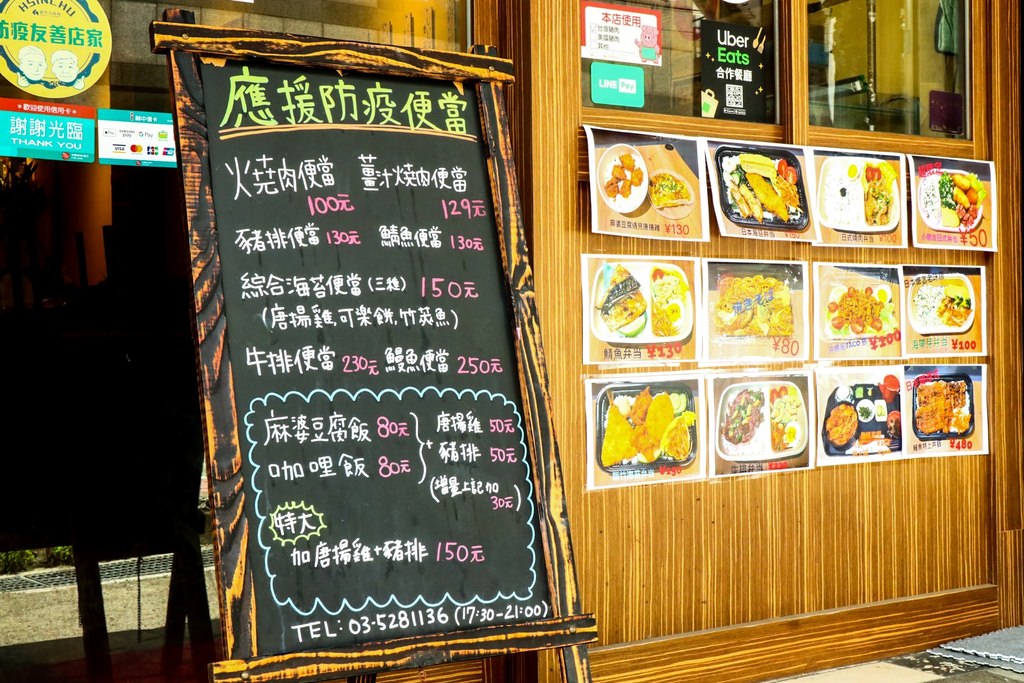 HSINCHU
防疫友善店家
*歡迎使用信用卡*
謝謝光臨
THANK YOU
Pay
G Pay
VISA
JCB
應援防疫便當
火燒肉便當 薑汁燒肉便當
100元 129元
豬排便當 130元 鯖魚便當 130元
綜合海苔便當(三種) 150元
(唐揚雞,可樂餅,竹莢魚)
牛排便當 230元 鰻魚便當 250元
麻婆豆腐飯 80元
咖哩飯 80元
+
唐揚雞 50元
豬排 50元
(增量上記加
30元)
特大
加唐揚雞+豬排 150元
TEL: 03-5281136 (17:30-21:00)
本店使用
台灣豬肉
美國豬肉
其他
LINE Pay
Uber
Eats
合作餐廳
¥130
日式燒肉弁当 ¥100
¥50
鯖魚弁当 ¥130
¥80
¥100
¥100
¥150
牛排弁当
¥480